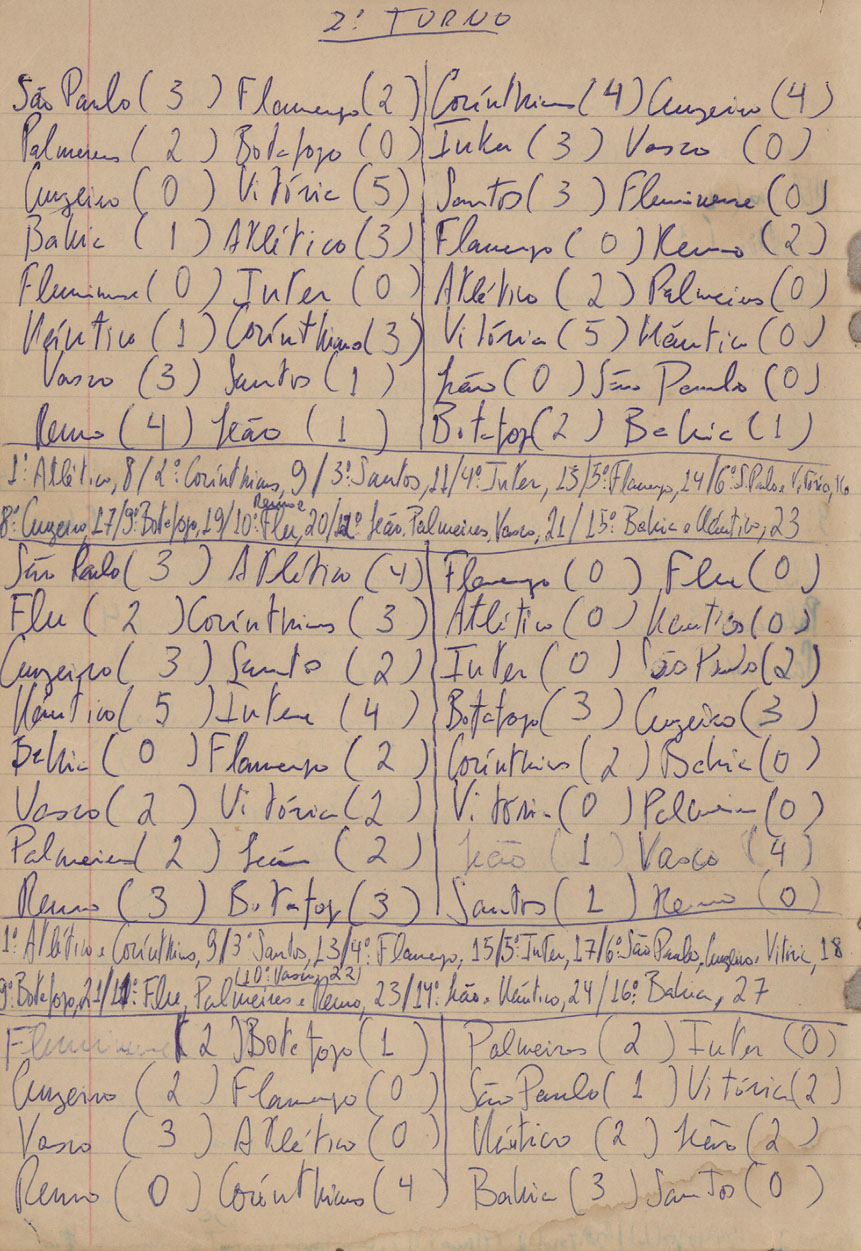 2º TURNO
São Paulo (3) Flamengo (2) Corínthians (4) Cruzeiro (4)
Palmeiras (2) Botafogo (0) Inter (3) Vasco (0)
Cruzeiro (0) Vitória (5) Santos (3) Fluminense (0)
Bahia (1) Atlético (3) Flamengo (0) Remo (2)
Fluminense (0) Inter (0) Atlético (2) Palmeiras (0)
Náutico (1) Corínthians (3) Vitória (5) Náutico (0)
Vasco (3) Santos (1) Leão (0) São Paulo (0)
Remo (4) Leão (1) Botafogo (2) Bahia (1)
1º Atlético, 8/2º Corínthians, 9/3º Santos, 11/4º Inter, 13/5º Flamengo, 14/6º S. Paulo e Vitória, 16
8º Cruzeiro, 17/9º Botafogo, 19/10º Remo e Flu, 20/12º Leão, Palmeiras, Vasco, 21/15º Bahia e Náutico, 23
São Paulo (3) Atlético (4) Flamengo (0) Flu (0)
Flu (2) Corínthians (3) Atlético (0) Náutico (0)
Cruzeiro (3) Santos (2) Inter (0) São Paulo (2)
Náutico (5) Inter (4) Botafogo (3) Cruzeiro (3)
Bahia (0) Flamengo (2) Corínthians (2) Bahia (0)
Vasco (2) Vitória (2) Vitória (0) Palmeiras (0)
Palmeiras (2) Leão (2) Leão (1) Vasco (4)
Remo (3) Botafogo (3) Santos (1) Remo (0)
1º Atlético e Corínthians, 9/3º Santos, 13/4º Flamengo, 15/5º Inter, 17/6º São Paulo, Cruzeiro e Vitória, 18
9º Botafogo, 21/(10º Vasco, 22) 11º Flu, Palmeiras e Remo, 23/14º Leão e Náutico, 24/16º Bahia, 27
Fluminense (2) Botafogo (1) Palmeiras (2) Inter (0)
Cruzeiro (2) Flamengo (0) São Paulo (1) Vitória (2)
Vasco (3) Atlético (0) Náutico (2) Leão (2)
Remo (0) Corínthians (4) Bahia (3) Santos (0)